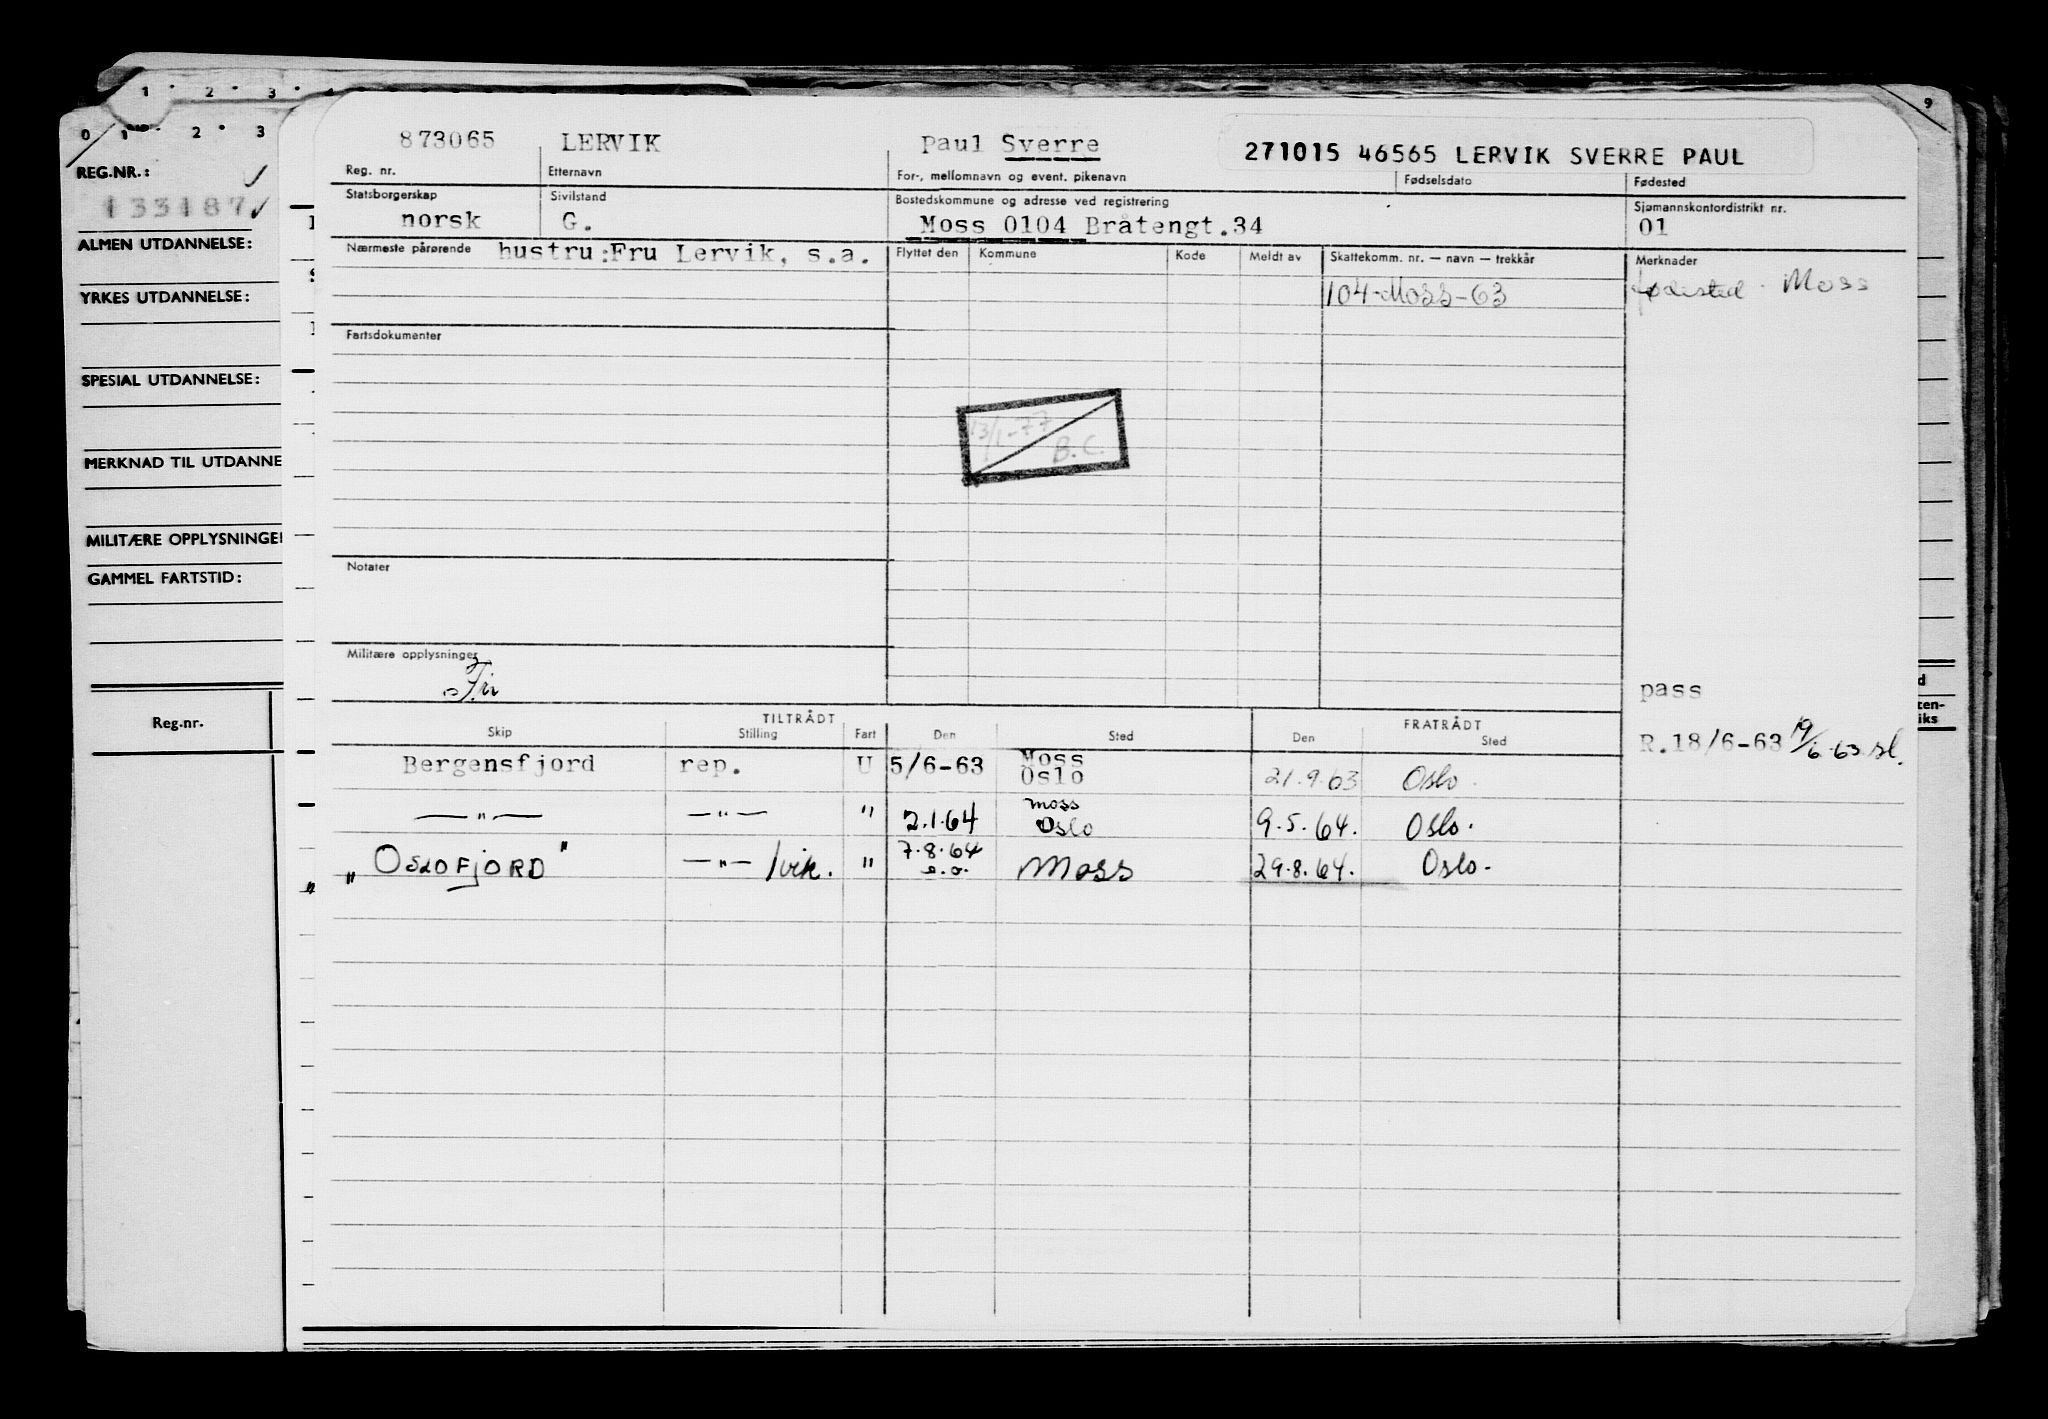 1 2 3 4
0 1 2 3
9
REG.NR.:
133187
ALMEN UTDANNELSE:
YRKES UTDANNELSE:
SPESIAL UTDANNELSE:
MERKNAD TIL UTDANNE
MILITÆRE OPPLYSNINGE
GAMMEL FARTSTID:
Reg.nr.
873065 LERVIK Paul Sverre 271015 46565 LERVIK SVERRE PAUL
Reg. nr. Etternavn For-, mellomnavn og event. pikenavn Fødselsdato Fødested
Statsborgerskap Sivilstand Bostedskommune og adresse ved registrering Sjømannskontordistrikt nr.
norsk G. Moss 0104 Bråtengt.34 01
Nærmeste pårørende hustru:Fru Lervik, s.a. Flyttet den Kommune Kode Meldt av Skattekomm. nr. — navn — trekkår Merknader
104-Moss-63 fødested. Moss
Fartsdokumenter
13/1-77
B.C.
Notater
Militære opplysninger
pass
TILTRÅDT FRATRÅDT
Skip Stilling Fart Den Sted Den Sted
R.18/6-63 19/6-63 sl.
Bergensfjord rep. U 5/6-63 Moss Oslo 21.9.63 Oslo.
—"— —"— " 2.1.64 Moss Oslo 9.5.64. Oslo.
"OSLOFJORD" —"— /vik. " 7.8.64 Moss 29.8.64. Oslo.
d
ten-
iks